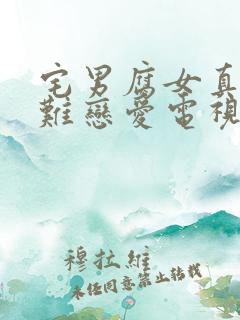 宅男腐女真
難戀愛電視
穆拉維
未經同意禁止轉載